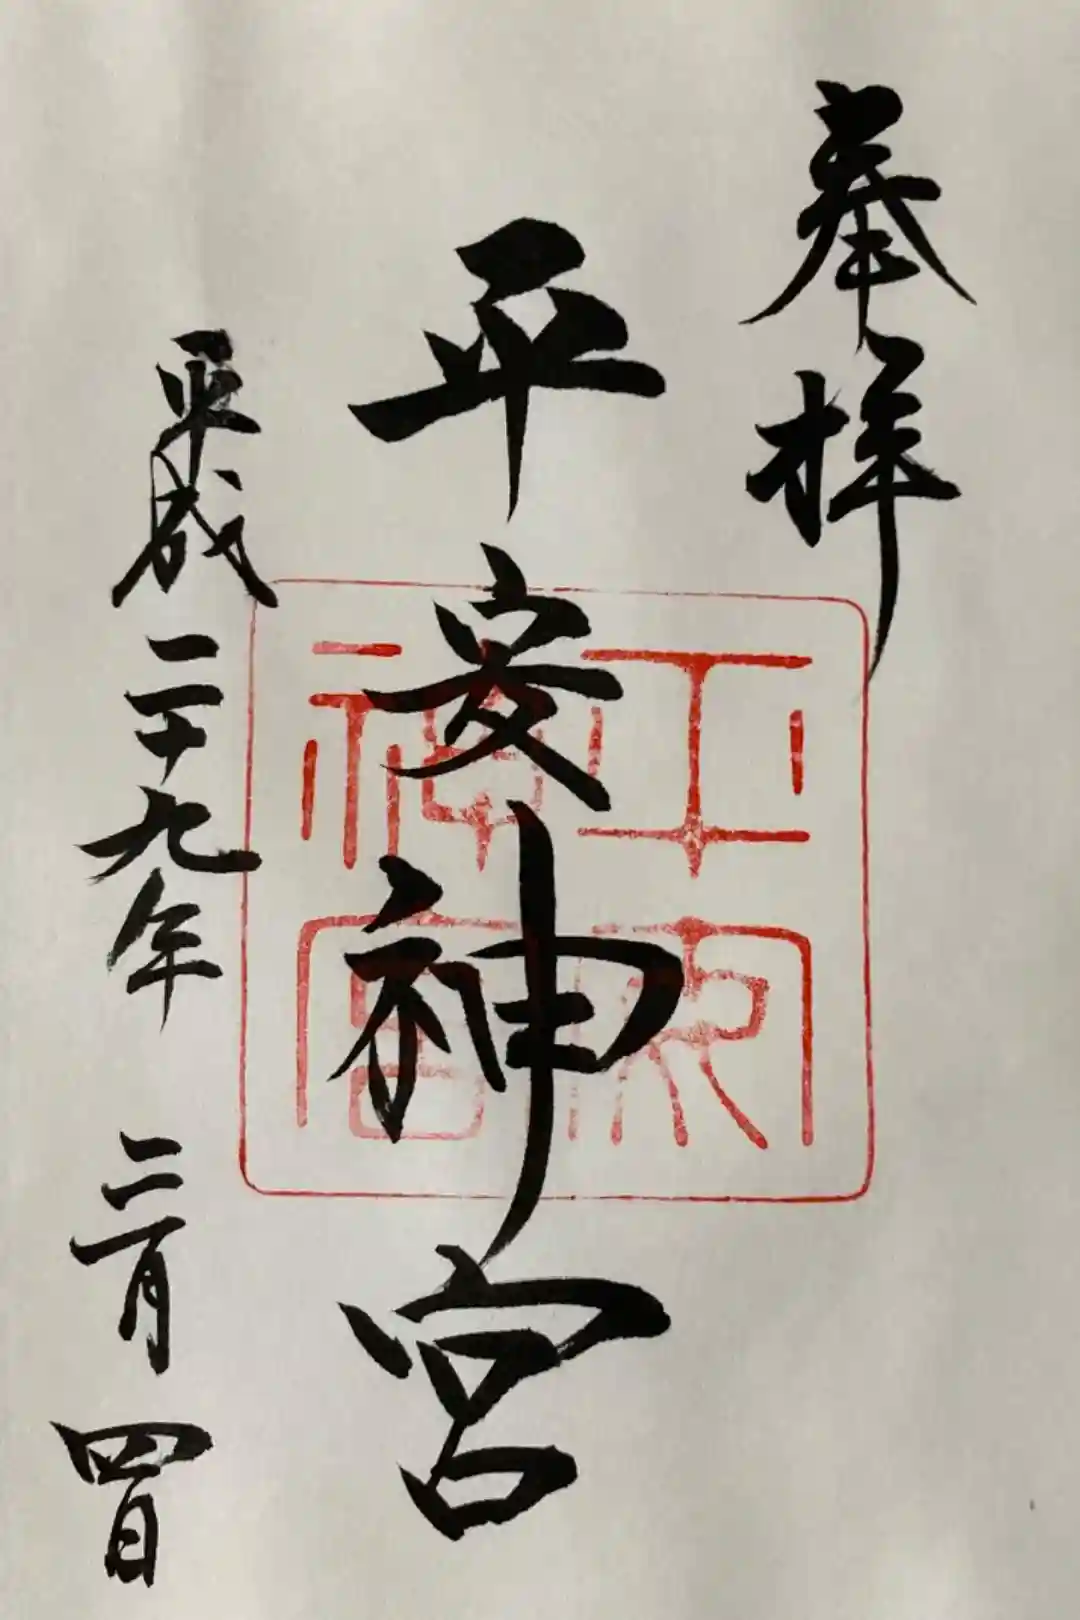 奉拝
平安神宮
平成二十九年二月四日
平安神宮